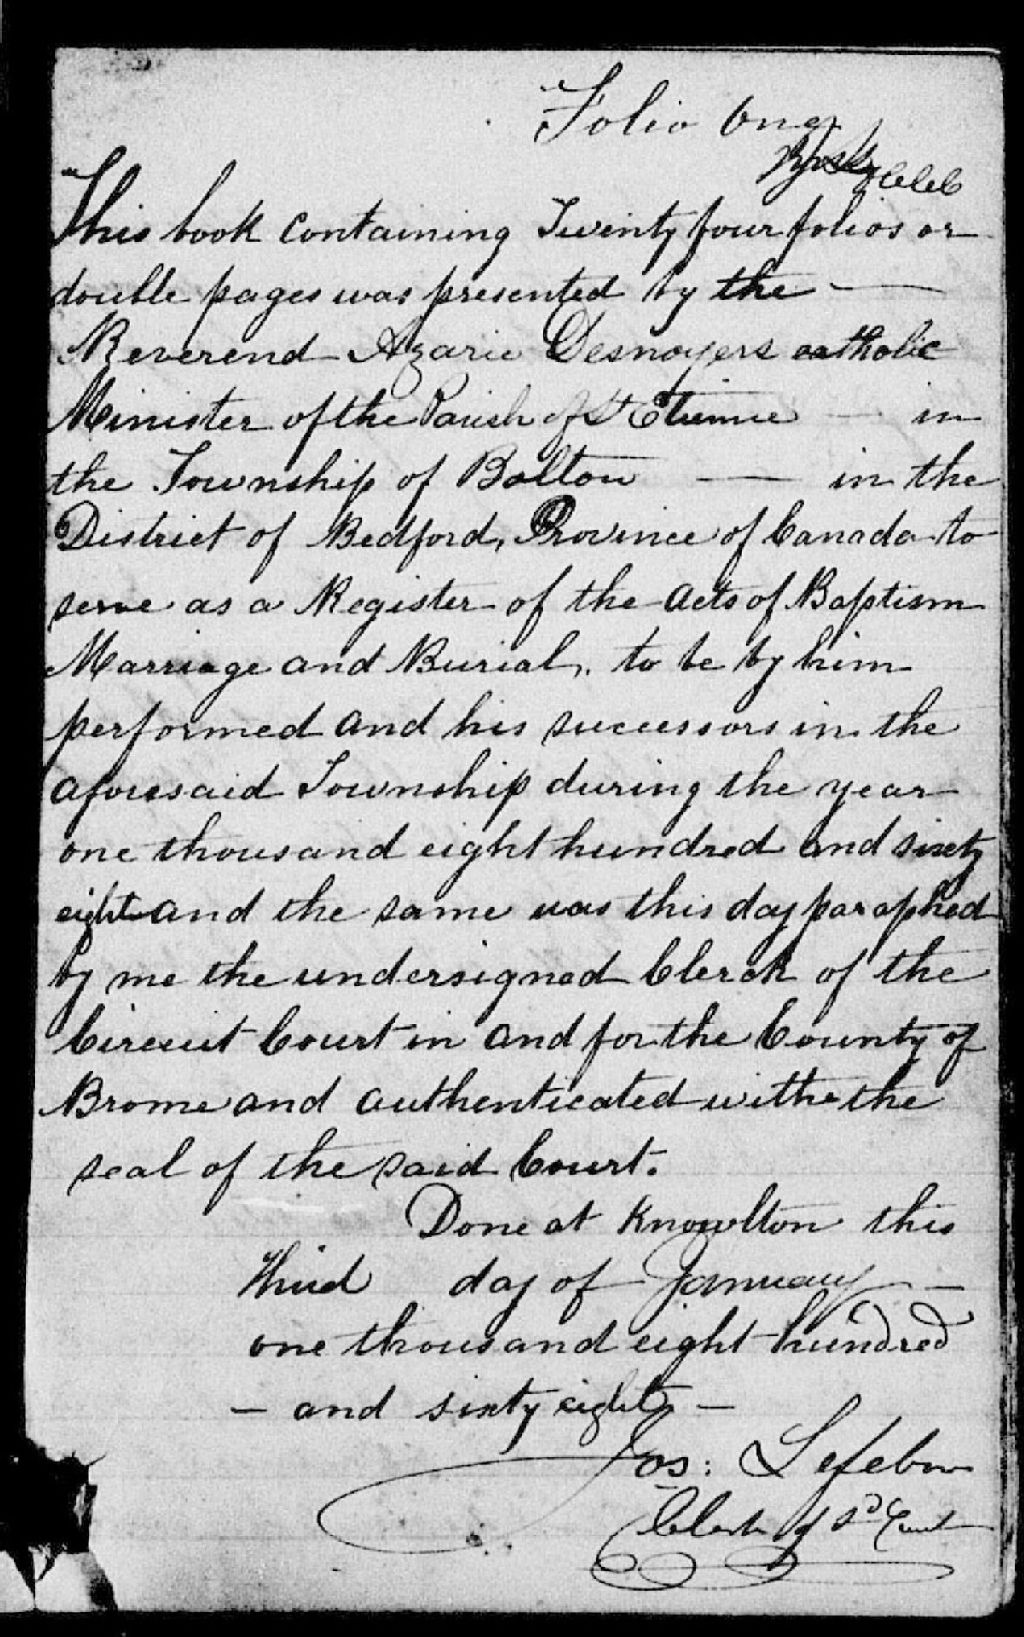 Folio One
This book containing Twenty four folios or
double pages was presented by the —
Reverend Azarie Desnoyers catholic
Minister of the Parish of St Etienne — in
the Township of Bolton — in the
District of Bedford, Province of Canada to
serve as a Register of the Acts of Baptism
Marriage and Burial, to be by him
performed and his successors in the
aforesaid Township during the year
one thousand eight hundred and sixty
eight and the same was this day paraphed
by me the undersigned Clerck of the
Circuit Court in and for the County of
Brome and authenticated with the
seal of the said Court.
Done at Knowlton this
third day of January —
one thousand eight hundred
— and sixty eight —
Jos: Lefebvre
Clerk of sd Court